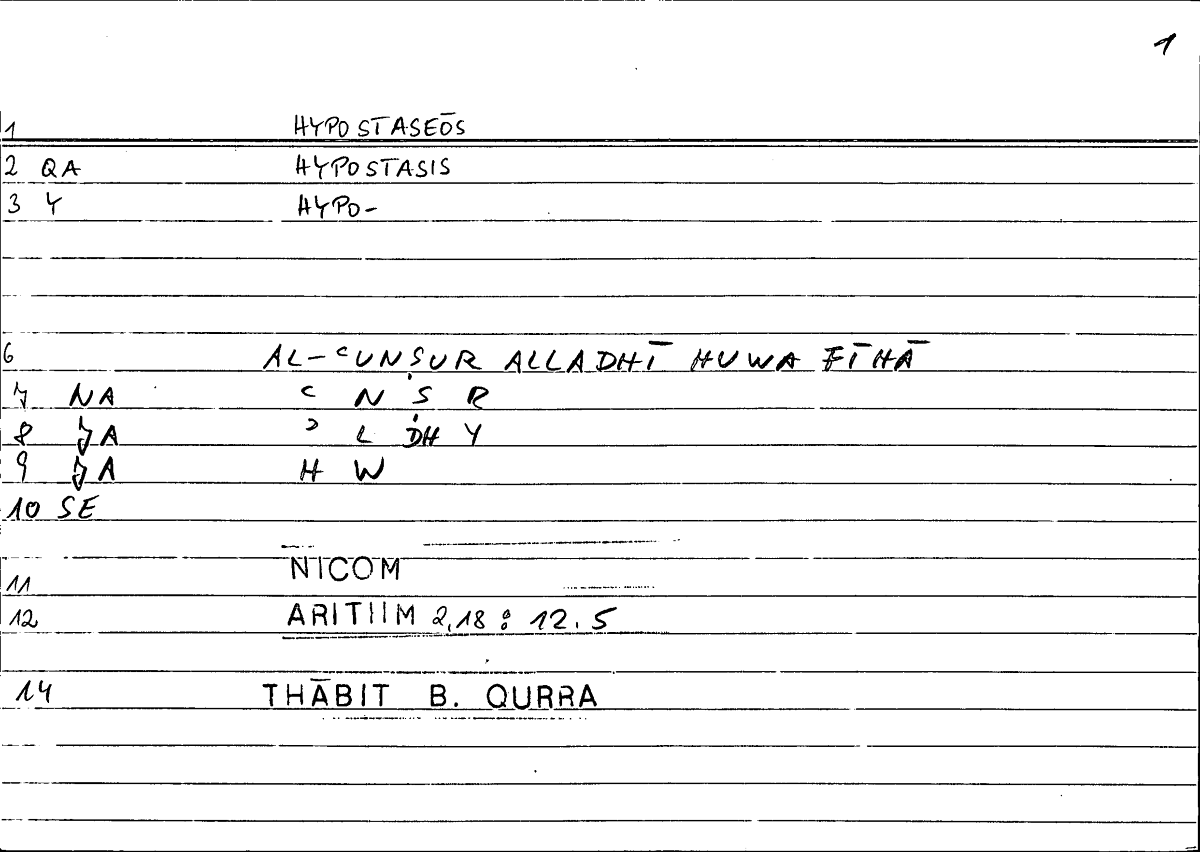 1
1 HYPOSTASEŌS
2 QA HYPOSTASIS
3 Y HYPO-
6 AL-ʿUNṢUR ALLADHĪ HUWA FĪHĀ
7 NA ʿ N Ṣ R
8 JA ʾ L ḊH Y
9 JA H W
10 SE
11 NICOM
12 ARITIIM 2,18 : 12.5
14 THĀBIT B. QURRA